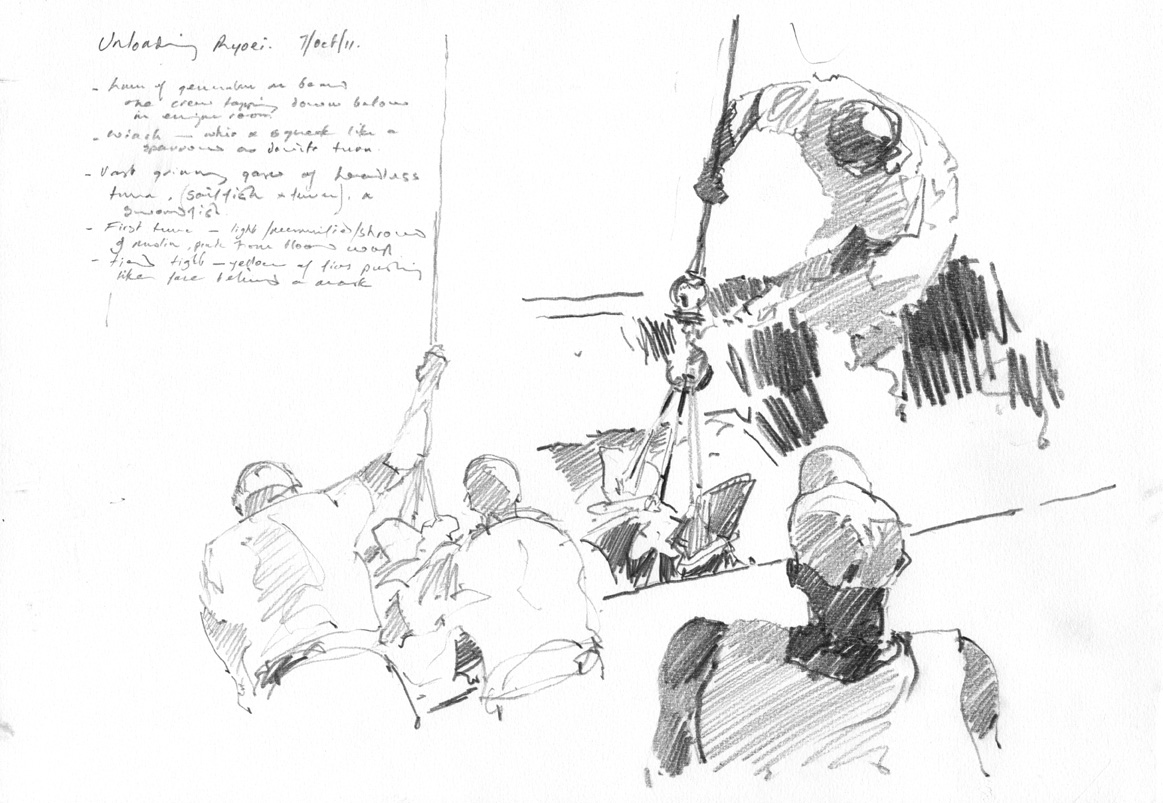 Unloading Ryoei. 7/Oct/11.
- hum of generator on board
one crew tapping down below
in engine room
- Winch — whir & squeak like a
sparrow as davits turn.
- Vast grinning gapes of headless
tuna, (sailfish + tuna), &
swordfish.
- First tuna — light / mummified / shroud
of muslin, pink from blood
- tight — yellow of fins pushing
like face behind a mask